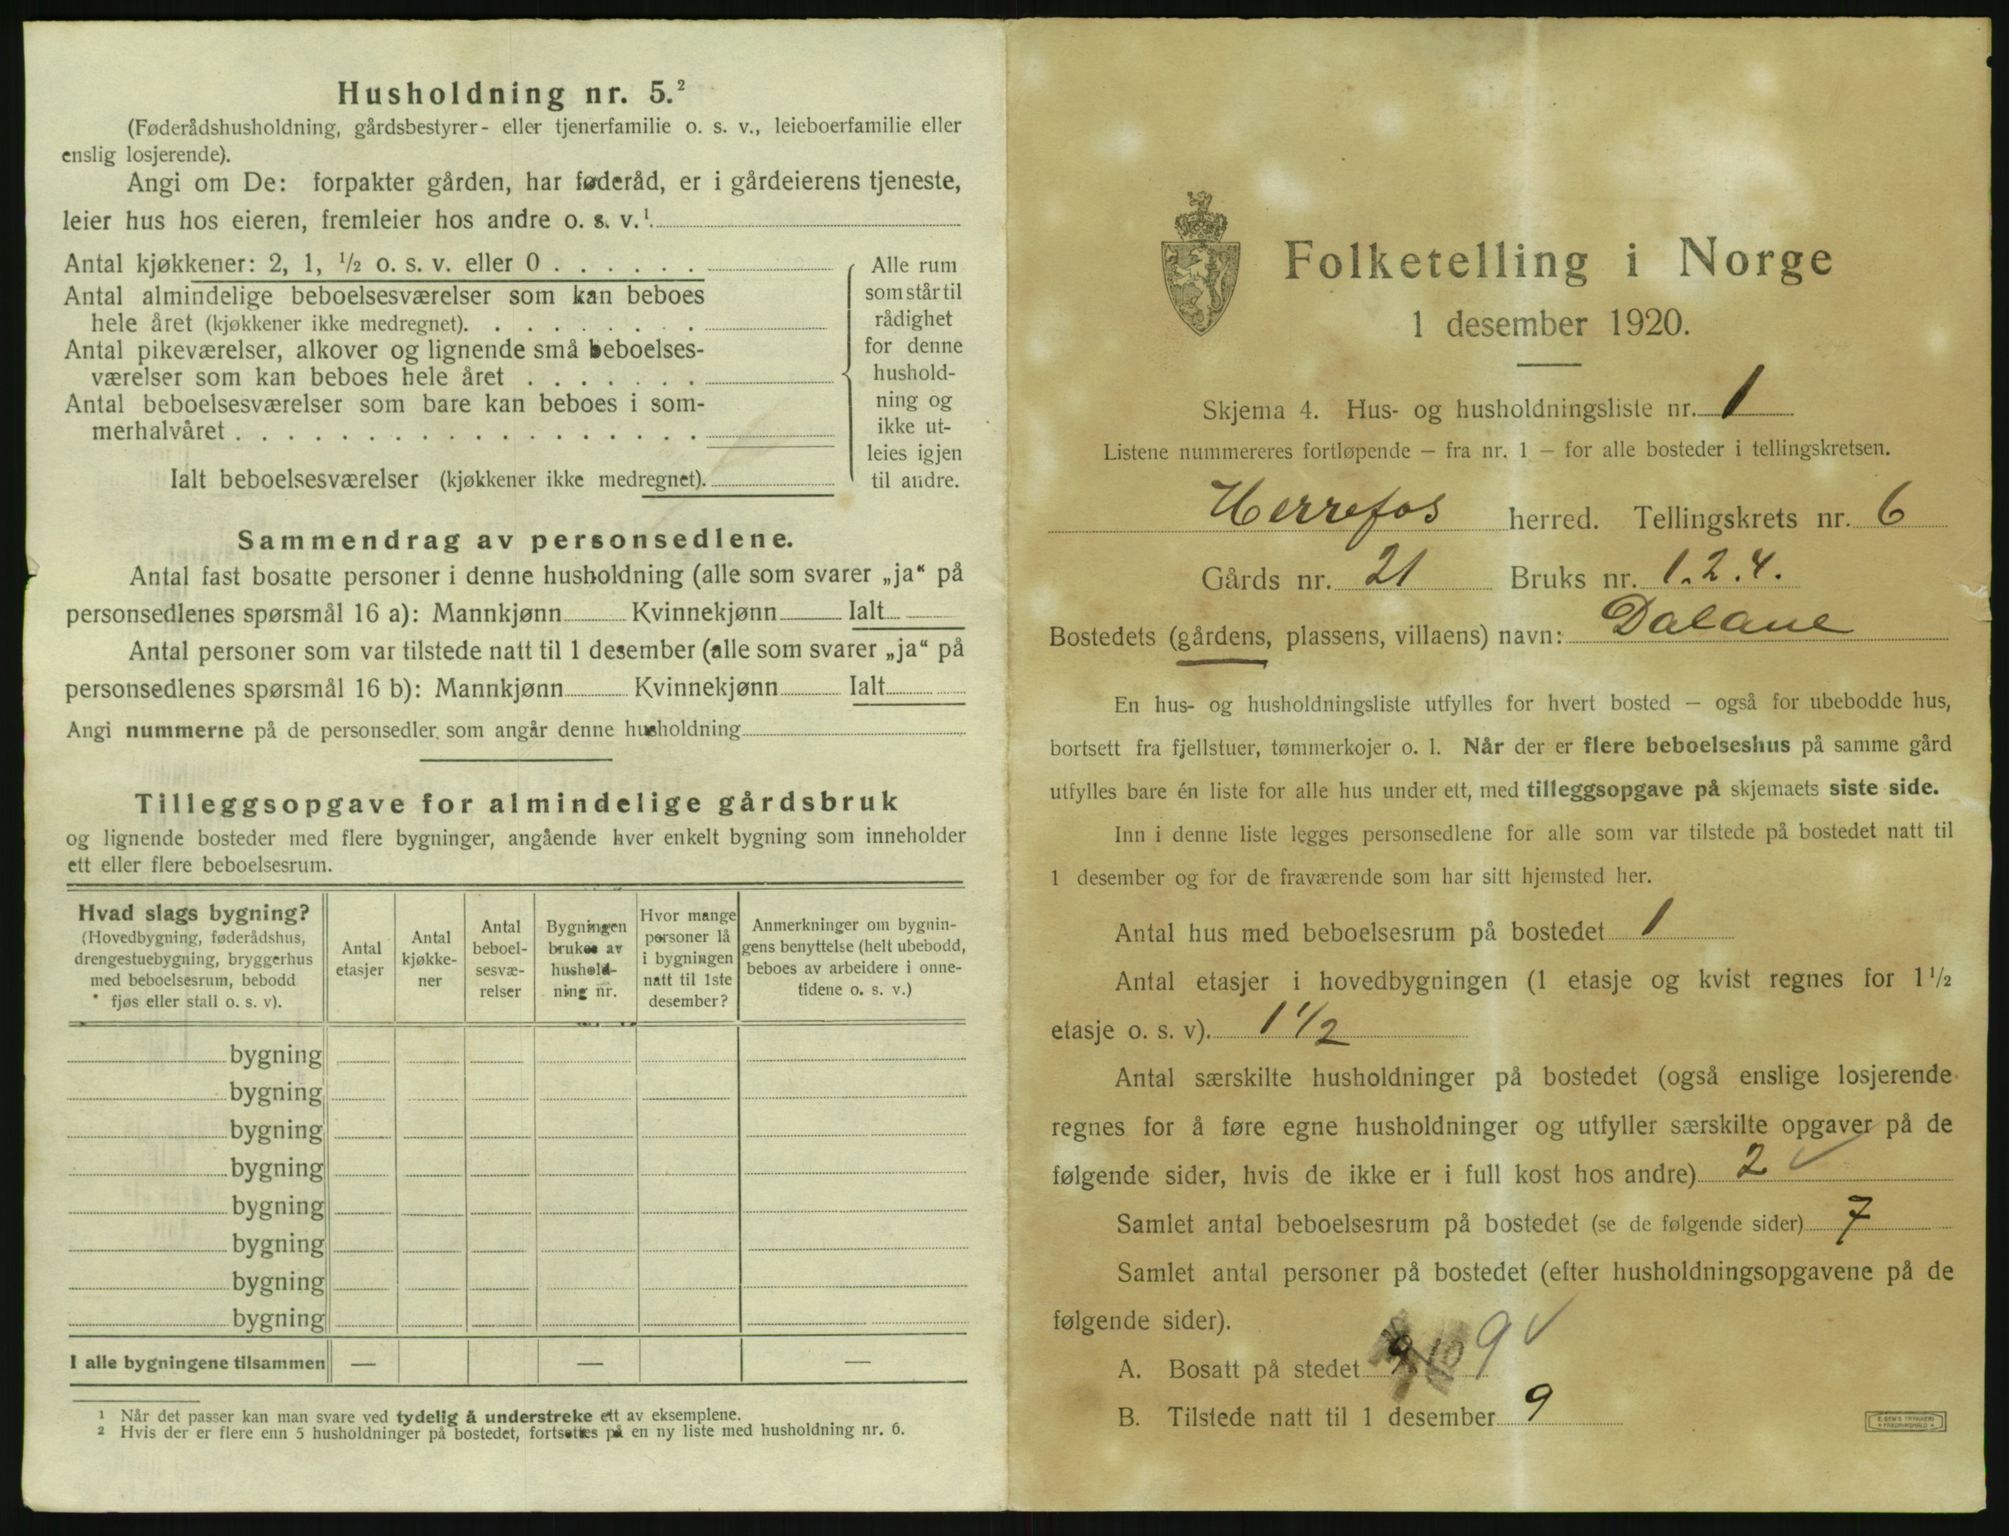 Husholdning nr. 5.²
(Føderådshusholdning, gårdsbestyrer- eller tjenerfamilie o. s. v., leieboerfamilie eller
enslig losjerende).
Angi om De: forpakter gården, har føderåd, er i gårdeierens tjeneste,
leier hus hos eieren, fremleier hos andre o. s. v.¹
Antal kjøkkener: 2, 1, ½ o. s. v. eller 0 . . . . . .
Antal almindelige beboelsesværelser som kan beboes
hele året (kjøkkener ikke medregnet). . . . . . . . .
Antal pikeværelser, alkover og lignende små beboelses-
værelser som kan beboes hele året . . . . . . .
Antal beboelsesværelser som bare kan beboes i som-
merhalvåret . . . . . . . . . . . . . . . . . .
Ialt beboelsesværelser (kjøkkener ikke medregnet).
Alle rum
som står til
rådighet
for denne
hushold-
ning og
ikke ut-
leies igjen
til andre.
Sammendrag av personsedlene.
Antal fast bosatte personer i denne husholdning (alle som svarer „ja“ på
personsedlenes spørsmål 16 a): Mannkjønn Kvinnekjønn Ialt
Antal personer som var tilstede natt til 1 desember (alle som svarer „ja“ på
personsedlenes spørsmål 16 b): Mannkjønn Kvinnekjønn Ialt
Angi nummerne på de personsedler som angår denne husholdning
Tilleggsopgave for almindelige gårdsbruk
og lignende bosteder med flere bygninger, angående hver enkelt bygning som inneholder
ett eller flere beboelsesrum.
Hvad slags bygning?
(Hovedbygning, føderådshus,
drengestuebygning, bryggerhus
med beboelsesrum, bebodd
fjøs eller stall o. s. v).
Antal
etasjer
Antal
kjøkke-
ner
Antal
beboel-
sesvæ-
relser
Bygningen
brukes av
hushold-
ning nr.
Hvor mange
personer lå
i bygningen
natt til 1ste
desember?
Anmerkninger om bygnin-
gens benyttelse (helt ubebodd,
beboes av arbeidere i onne-
tidene o. s. v.)
bygning
bygning
bygning
bygning
bygning
bygning
bygning
bygning
I alle bygningene tilsammen — — —
¹ Når det passer kan man svare ved tydelig å understreke ett av eksemplene.
² Hvis der er flere enn 5 husholdninger på bostedet, fortsettes på en ny liste med husholdning nr. 6.
Folketelling i Norge
1 desember 1920.
Skjema 4. Hus- og husholdningsliste nr. 1
Listene nummereres fortløpende — fra nr. 1 — for alle bosteder i tellingskretsen.
Herrefos herred. Tellingskrets nr. 6
Gårds nr. 21 Bruks nr. 1.2.4.
Bostedets (gårdens, plassens, villaens) navn: Dalane
En hus- og husholdningsliste utfylles for hvert bosted — også for ubebodde hus,
bortsett fra fjellstuer, tømmerkojer o. l. Når der er flere beboelseshus på samme gård
utfylles bare én liste for alle hus under ett, med tilleggsopgave på skjemaets siste side.
Inn i denne liste legges personsedlene for alle som var tilstede på bostedet natt til
1 desember og for de fraværende som har sitt hjemsted her.
Antal hus med beboelsesrum på bostedet 1
Antal etasjer i hovedbygningen (1 etasje og kvist regnes for 1½
etasje o. s. v). 1½
Antal særskilte husholdninger på bostedet (også enslige losjerende
regnes for å føre egne husholdninger og utfyller særskilte opgaver på de
følgende sider, hvis de ikke er i full kost hos andre) 2 ✓
Samlet antal beboelsesrum på bostedet (se de følgende sider) 7
Samlet antal personer på bostedet (efter husholdningsopgavene på de
følgende sider).
A. Bosatt på stedet 10 9 ✓
B. Tilstede natt til 1 desember 9